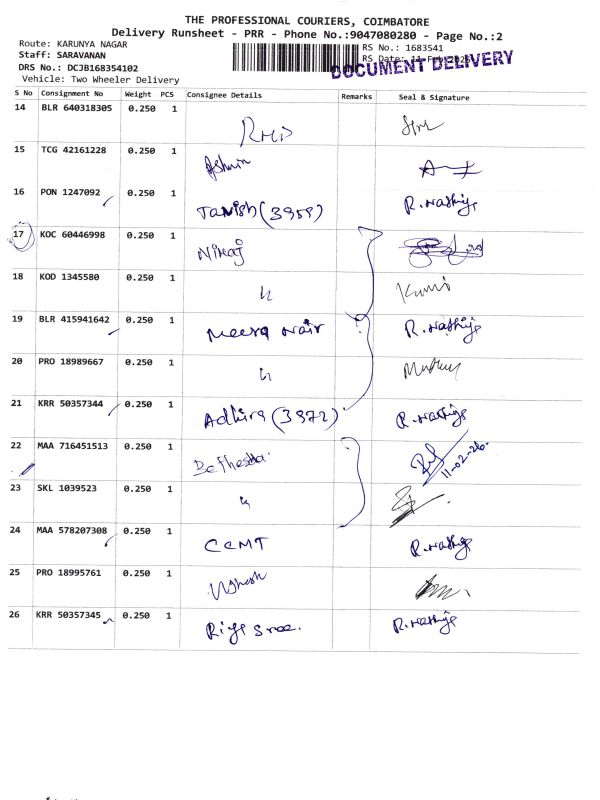 THE PROFESSIONAL COURIERS, COIMBATORE
Delivery Runsheet - PRR - Phone No.:9047080280 - Page No.:2
Route: KARUNYA NAGAR
Staff: SARAVANAN
DRS No.: DCJB168354102
Vehicle: Two Wheeler Delivery
RS No.: 1683541
RS Date:
DOCUMENT DELIVERY
S No Consignment No Weight PCS Consignee Details Remarks Seal & Signature
14 BLR 640318305 0.250 1
15 TCG 42161228 0.250 1 Ashwin
16 PON 1247092 0.250 1 Tanish (3959) R.Nathiya
17 KOC 60446998 0.250 1 Niraj
18 KOD 1345580 0.250 1
19 BLR 415941642 0.250 1 Meera Nair R.Nathiya
20 PRO 18989667 0.250 1
21 KRR 50357344 0.250 1 Adhira (3972) R.Nathiya
22 MAA 716451513 0.250 1 11-02-26.
23 SKL 1039523 0.250 1
24 MAA 578207308 0.250 1 CCMT R.Nathiya
25 PRO 18995761 0.250 1
26 KRR 50357345 0.250 1 R.Nathiya